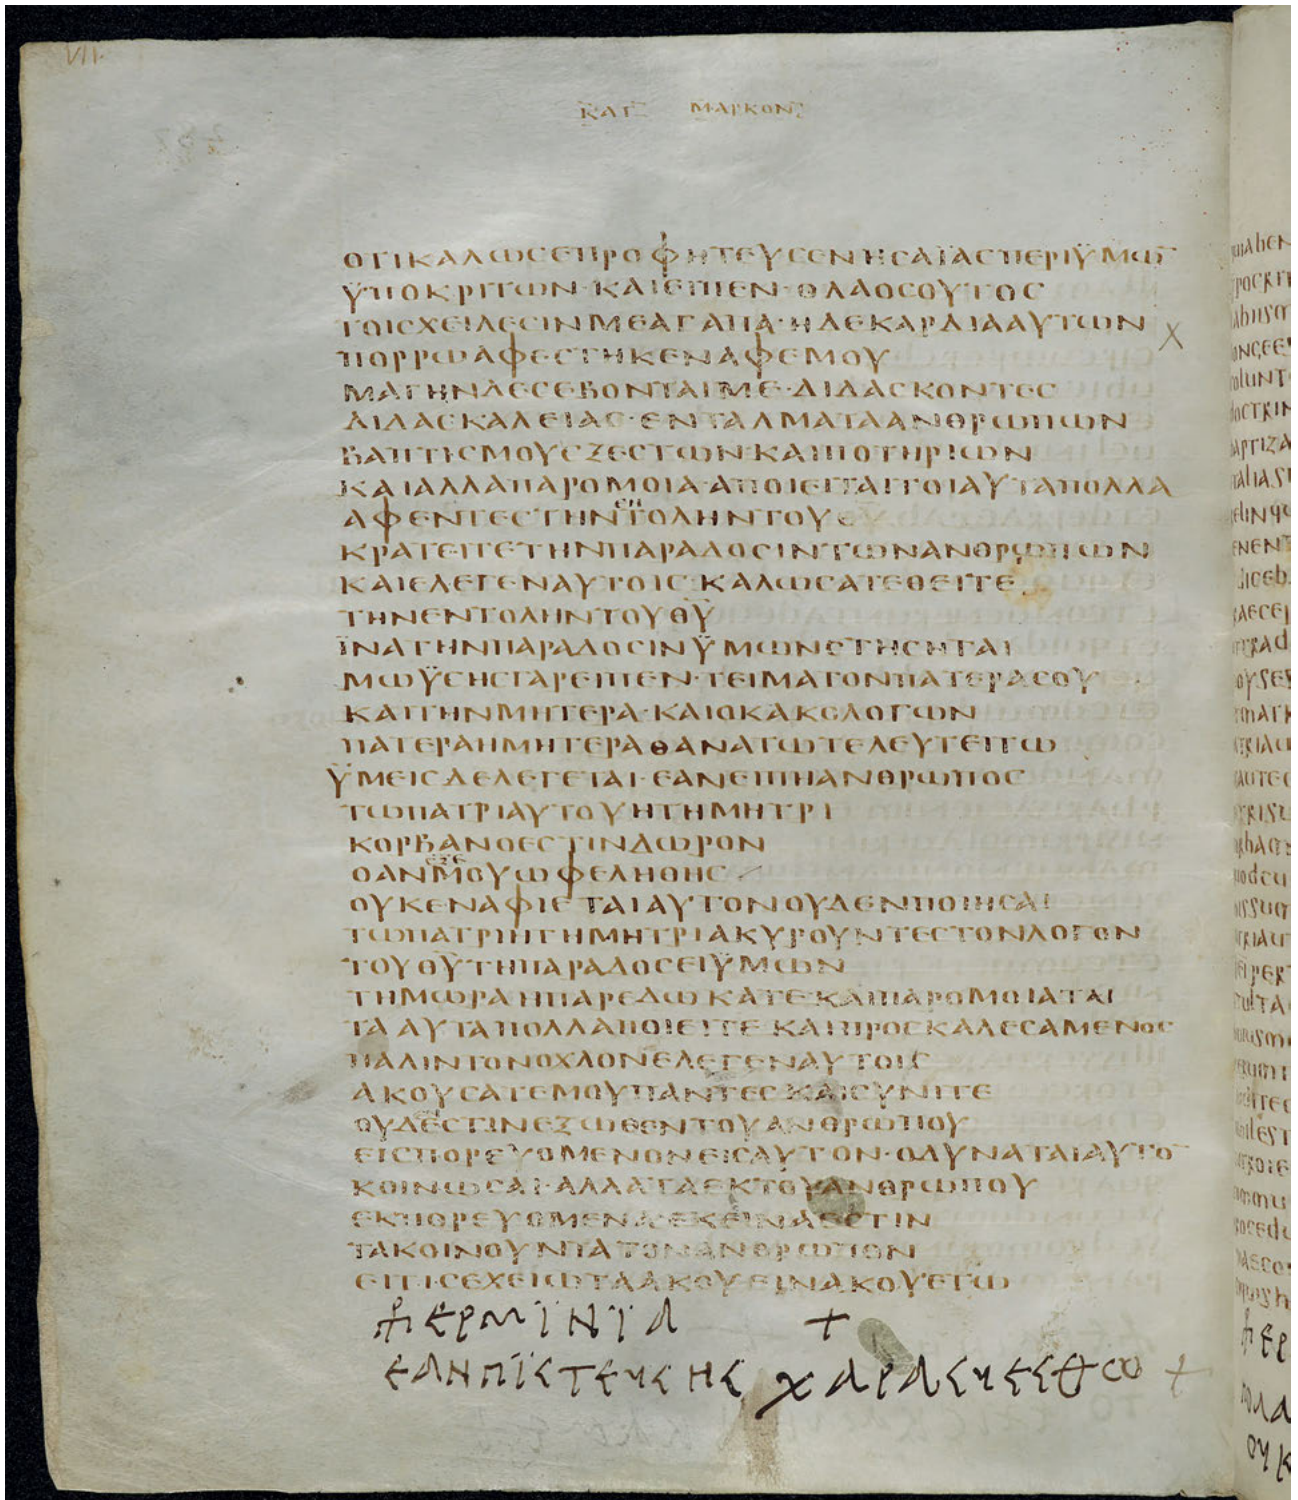 VII
ΚΑΤ ΜΑΡΚΟΝ
ΟΤΙΚΑΛΩСΕΠΡΟΦΗΤΕΥСΕΝΗСΑΪΑСΠΕΡΙΫΜΩ̅
ΫΠΟΚΡΙΤΩΝ·ΚΑΙΕΙΠΕΝ·ΟΛΑΟСΟΥΤΟС
ΤΟΙСΧΕΙΛΕСΙΝΜΕΑΓΑΠΑ·ΗΔΕΚΑΡΔΙΑΑΥΤΩΝ
ΠΟΡΡΩΑΦΕСΤΗΚΕΝΑΦΕΜΟΥ
ΜΑΤΗΝΔΕСΕΒΟΝΤΑΙΜΕ·ΔΙΔΑСΚΟΝΤΕС
ΔΙΔΑСΚΑΛΕΙΑС·ΕΝΤΑΛΜΑΤΑΑΝΘΡΩΠΩΝ
ΒΑΠΤΙСΜΟΥСΖΕСΤΩΝ·ΚΑΙΠΟΤΗΡΙΩΝ
ΚΑΙΑΛΛΑΠΑΡΟΜΟΙΑ·ΑΠΟΙΕΙΤΑΙΤΟΙΑΥΤΑΠΟΛΛΑ
ΑΦΕΝΤΕСΤΗΝΤΟΛΗΝΤΟΥ
ΚΡΑΤΕΙΤΕΤΗΝΠΑΡΑΔΟСΙΝΤΩΝΑΝΘΡΩΠΩΝ
ΚΑΙΕΛΕΓΕΝΑΥΤΟΙС·ΚΑΛΩСΑΤΕΘΕΙΤΕ
ΤΗΝΕΝΤΟΛΗΝΤΟΥΘ̅Υ̅
ΪΝΑΤΗΝΠΑΡΑΔΟСΙΝΫΜΩΝСΤΗСΗΤΑΙ
ΜΩΫСΗСΓΑΡΕΙΠΕΝ·ΤΕΙΜΑΤΟΝΠΑΤΕΡΑСΟΥ
ΚΑΙΤΗΝΜΗΤΕΡΑ·ΚΑΙΟΚΑΚΟΛΟΓΩΝ
ΠΑΤΕΡΑΗΜΗΤΕΡΑΘΑΝΑΤΩΤΕΛΕΥΤΕΙΤΩ
ΫΜΕΙСΔΕΛΕΓΕΤΑΙ·ΕΑΝΕΙΠΗΑΝΘΡΩΠΟС
ΤΩΠΑΤΡΙΑΥΤΟΥΗΤΗΜΗΤΡΙ
ΚΟΡΒΑΝΟΕСΤΙΝΔΩΡΟΝ
ΟΑΝΜΟΥΩΦΕΛΗΘΗС
ΟΥΚΕΝΑΦΙΕΤΑΙΑΥΤΟΝΟΥΔΕΝΠΟΙΗСΑΙ
ΤΩΠΑΤΡΙΗΤΗΜΗΤΡΙΑΚΥΡΟΥΝΤΕСΤΟΝΛΟΓΟΝ
ΤΟΥΘ̅Υ̅ΤΗΠΑΡΑΔΟСΕΙΫΜΩΝ
ΤΗΜΩΡΑΗΠΑΡΕΔΩΚΑΤΕ·ΚΑΙΠΑΡΟΜΟΙΑΤΑΙ
ΤΑΑΥΤΑΠΟΛΛΑΠΟΙΕΙΤΕ·ΚΑΙΠΡΟСΚΑΛΕСΑΜΕΝΟС
ΠΑΛΙΝΤΟΝΟΧΛΟΝΕΛΕΓΕΝΑΥΤΟΙС
ΑΚΟΥСΑΤΕΜΟΥΠΑΝΤΕСΚΑΙСΥΝΙΤΕ
ΟΥΔΕСΤΙΝΕΞΩΘΕΝΤΟΥΑΝΘΡΩΠΟΥ
ΕΙСΠΟΡΕΥΟΜΕΝΟΝΕΙСΑΥΤΟΝ·ΟΔΥΝΑΤΑΙΑΥΤΟ̅
ΚΟΙΝΩСΑΙ·ΑΛΛΑΤΑΕΚΤΟΥΑΝΘΡΩΠΟΥ
ΕΚΠΟΡΕΥΟΜΕΝΑ·ΕΚΕΙΝΑΕСΤΙΝ
ΤΑΚΟΙΝΟΥΝΤΑΤΟΝΑΝΘΡΩΠΟΝ
ΕΙΤΙСΕΧΕΙΩΤΑΑΚΟΥΕΙΝΑΚΟΥΕΤΩ
ΕΡΜΪΝΪΑ +
ΕΑΝΠΪСΤΕΥСΗС ΧΑΡΑСΥΕСΤΩ +